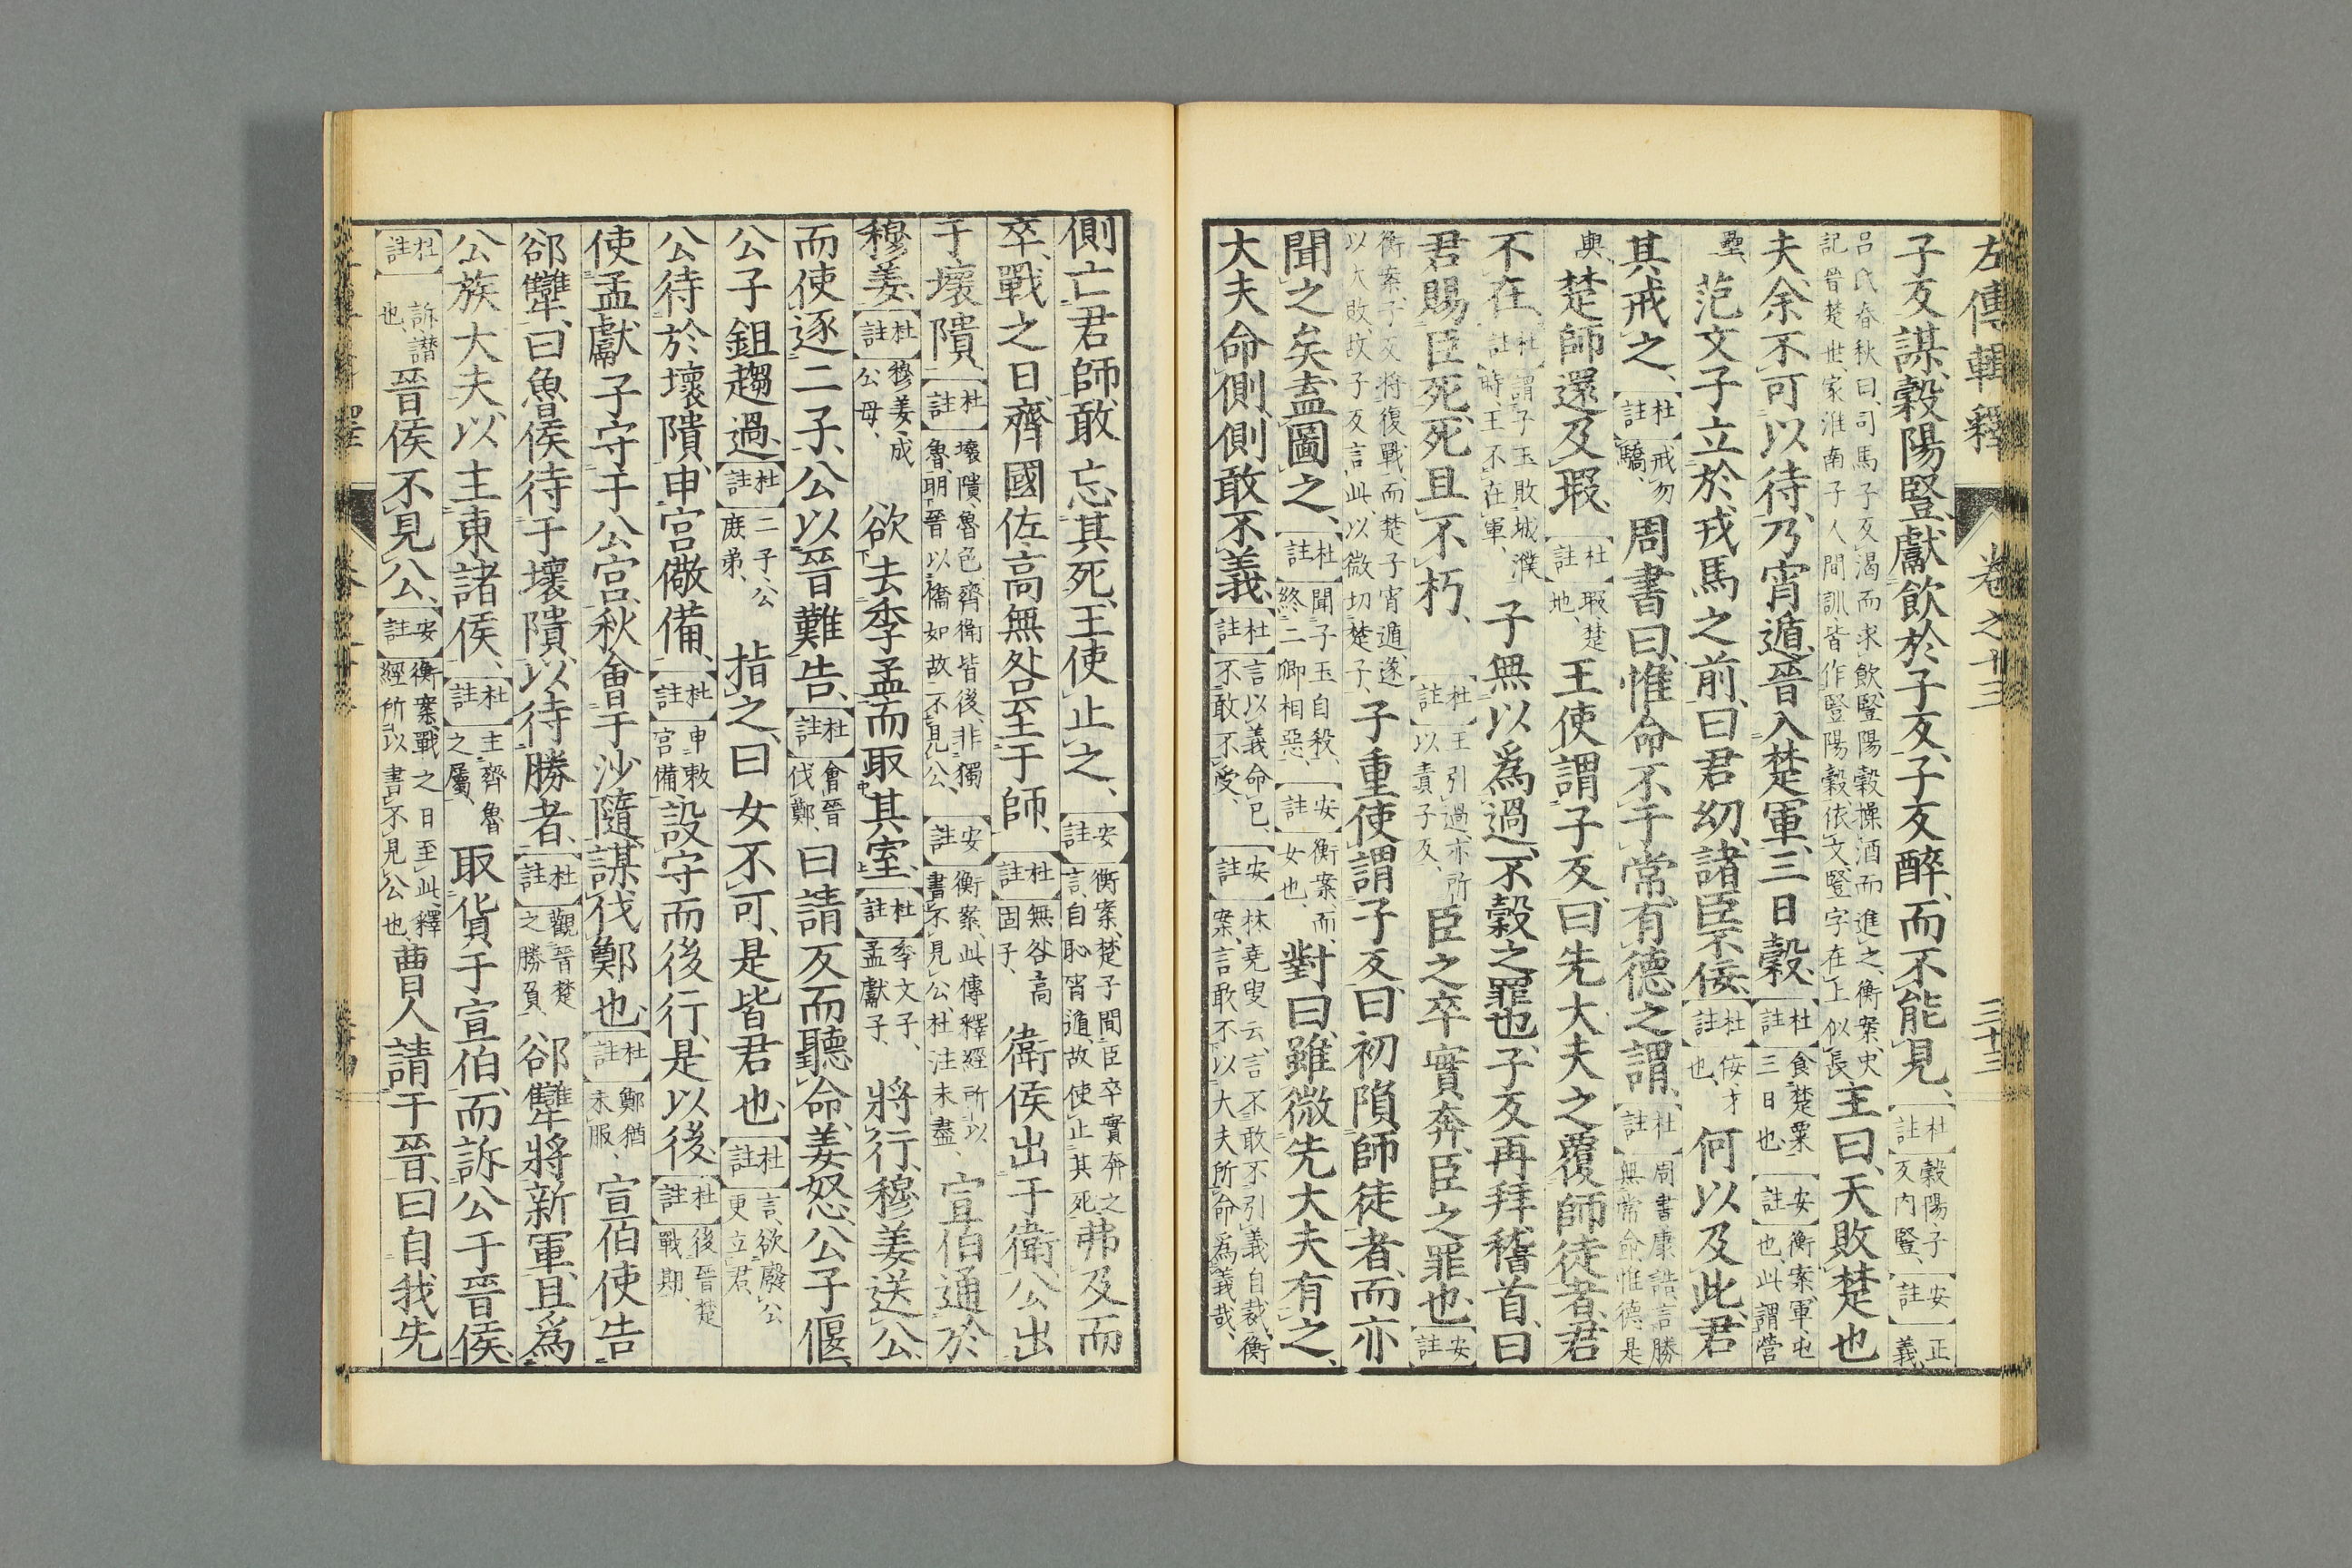 左傳輯釋 卷之十三 三十三
子反謀穀陽豎獻飲於子反子反醉而不能見杜註穀陽子反内豎安註正義
呂氏春秋曰司馬子反渴而求飲豎陽穀操酒而進之衡案史記晉楚世家淮南子人間訓皆作豎陽穀依文豎字在上似長王曰天敗楚也
夫余不可以待乃宵遁晉入楚軍三日穀杜註食楚粟三日也安註衡案軍屯也此謂營
壘范文子立於戎馬之前曰君幼諸臣不佞杜註佞才也何以及此君
其戒之杜註戒勿驕周書曰惟命不于常有德之謂杜註周書康誥言勝無常命惟德是
與楚師還及瑕杜註瑕楚地王使謂子反曰先大夫之覆師徒者君
不在杜註謂子玉敗城濮時王不在軍子無以爲過不穀之罪也子反再拜稽首曰
君賜臣死死且不朽杜註王引過亦所以責子反臣之卒實奔臣之罪也安註
衡案子反將復戰而楚子宵遁遂以大敗故子反言此以微切楚子子重使謂子反曰初隕師徒者而亦
聞之矣盍圖之杜註聞子玉自殺終二卿相惡安註衡案而女也對曰雖微先大夫有之
大夫命側側敢不義杜註言以義命己不敢不受安註林堯叟云言不敢不引義自裁衡案言敢不以大夫所命爲義哉
側亡君師敢忘其死王使止之安註衡案楚子聞臣卒實奔之言自恥宵遁故使止其死弗及而
卒戰之日齊國佐高無咎至于師杜註無咎高固子衛侯出于衛公出
于壞隤杜註壞隤魯邑齊衛皆後非獨魯明晉以僑如故不見公安註衡案此傳釋經所以書不見公杜注未盡宣伯通於
穆姜杜註穆姜成公母欲去季孟而取其室杜註季文子孟獻子將行穆姜送公
而使逐二子公以晉難告杜註會晉伐鄭曰請反而聽命姜怒公子偃
公子鉏趨過杜註二子公庶弟指之曰女不可是皆君也杜註言欲廢公更立君
公待於壞隤申宮儆備杜註申敕宮備設守而後行是以後杜註後晉楚戰期
使孟獻子守于公宮秋會于沙隨謀伐鄭也杜註鄭猶未服宣伯使告
郤犨曰魯侯待于壞隤以待勝者杜註觀晉楚之勝負郤犨將新軍且爲
公族大夫以主東諸侯杜註主齊魯之屬取貨于宣伯而訴公于晉侯
杜註訴譖也晉侯不見公安註衡案戰之日至此釋經所以書不見公也曹人請于晉曰自我先